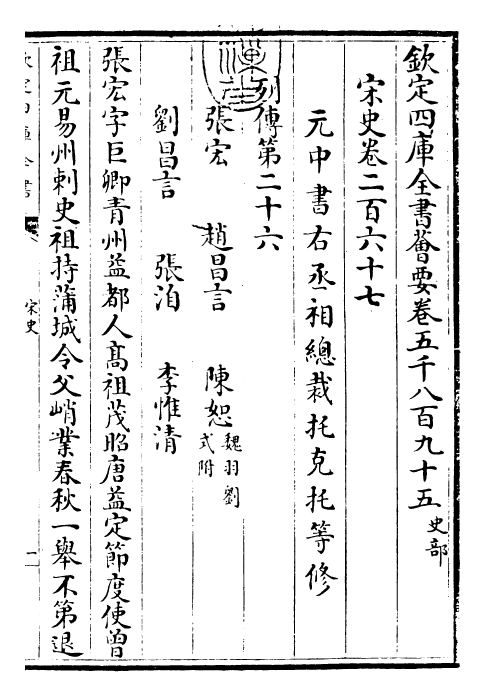 欽定四庫全書薈要卷五千八百九十五 史部
宋史卷二百六十七
元中書右丞相總裁托克托等修
列傳第二十六
張宏 趙昌言 陳恕 魏羽 劉式附
劉昌言 張洎 李惟清
張宏字巨卿青州益都人高祖茂昭唐益定節度使曾
祖元易州刺史祖持蒲城令父峭業春秋一舉不第退
欽定四庫全書
宋史
一